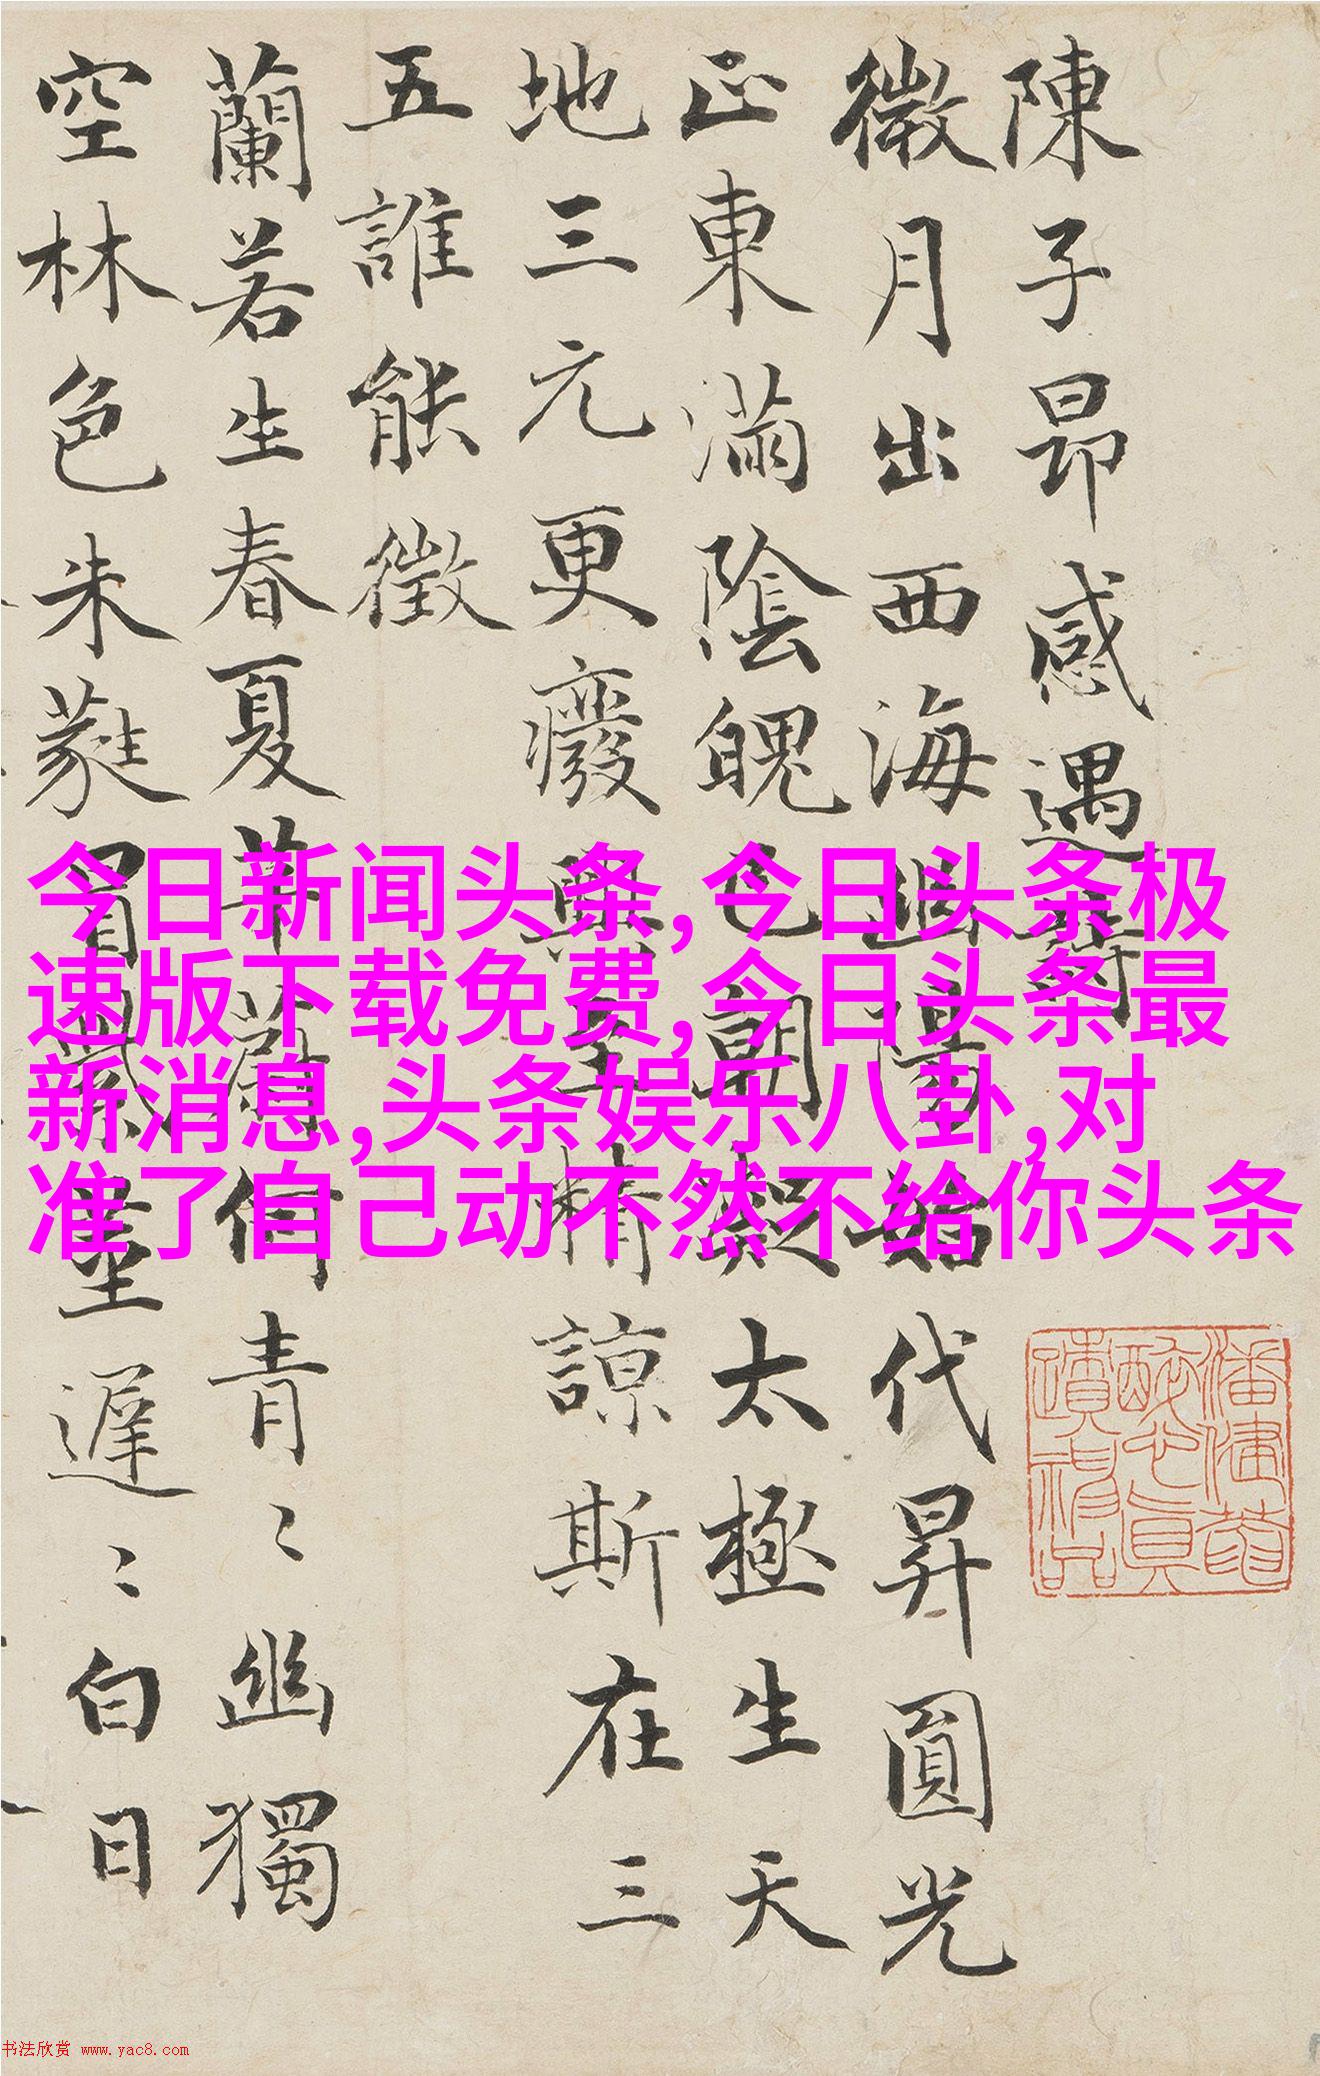 陳子昂感遇詩
微月出西海幽陽始代昇圓光
正東滿陰魄已朝凝太極生天
地三元更癈興至精諒斯在三
五誰能徵
蘭若生春夏芊蔚何青〻幽獨
空林色朱蕤冒紫莖遲〻白日
今日新闻头条,今日头条极
速版下载免费,今日头条最
新消息,头条娱乐八卦,对
准了自己动不然不给你头条
书法欣赏 www.yac8.com